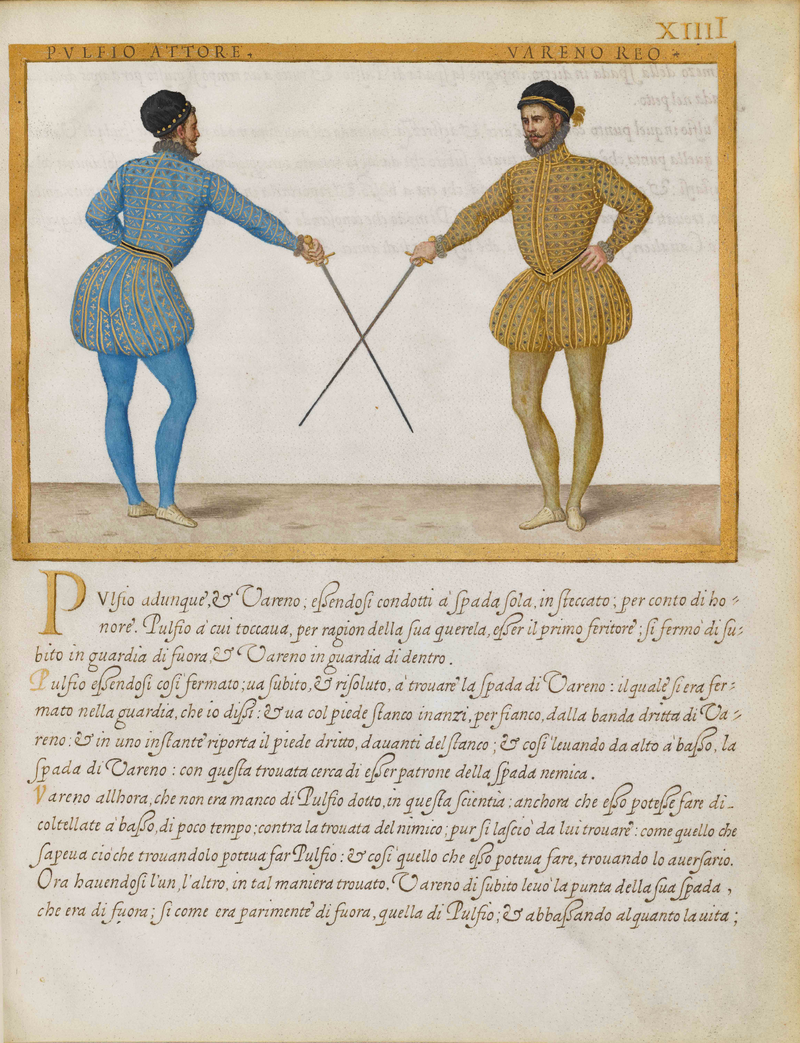 XIIII
PVLFIO ATTORE.
VARENO REO
Pvlfio adunque, & Vareno; eßendosi condotti à spada sola, in steccato; per conto di ho-
nore. Pulfio à cui toccaua, per ragion della sua querela, eßer il primo feritore; si fermò di su-
bito in guardia di fuora, & Vareno in guardia di dentro.
Pulfio eßendosi così fermato; ua subito, & risoluto, à trouare la spada di Vareno: il quale si era fer-
mato nella guardia, che io dißi: & ua col piede stanco inanzi, per fianco, dalla banda dritta di Va-
reno: & in uno instante riporta il piede dritto, dauanti del stanco; & così leuando da alto à baßo, la
spada di Vareno: con questa trouata cerca di eßer patrone della spada nemica.
Vareno allhora, che non era manco di Pulfio dotto, in questa scientia: anchora che eßo poteße fare di
coltellate à baßo, di poco tempo; contra la trouata del nimico; pur si lasciò da lui trouare: come quello che
sapeua ciò che trouandolo poteua far Pulfio: & così quello che eßo poteua fare, trouando lo auersario.
Ora hauendosi l'un, l'altro, in tal maniera trouato. Vareno di subito leuò la punta della sua spada,
che era di fuora; si come era parimente di fuora, quella di Pulfio; & abbaßando alquanto la uita;